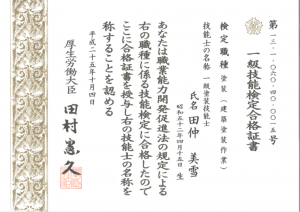 第一三-一-〇六〇-四〇-〇〇一五号
一級技能検定合格証書
検定職種 塗装(建築塗装作業)
技能士の名称 一級塗装技能士
氏名 田仲 美雪
昭和五十二年四月十五日 生
あなたは職業能力開発促進法の規定による
右の職種に係る技能検定に合格したので
ここに合格証書を授与し右の技能士の名称を
称することを認める
平成二十五年十月四日
厚生労働大臣 田村憲久